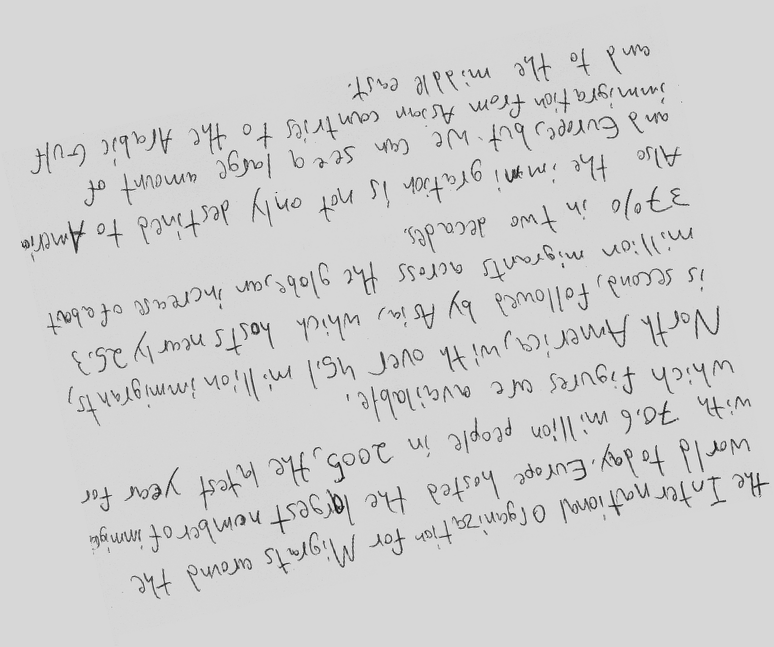 the International Organization for Migrats around the
world today. Europe hosted the largest number of immig
with 70.6 million people in 2005, the latest year for
which figures are available.
North America, with over 45.1 million immigrants,
is second, followed by Asia, which hosts nearly 25.3
million migrants across the globe, an increase of about
37% in two decades.
Also the immigration is not only destined to America
and Europe, but we can see a large amount of
immigration from Asian countries to the Arabic Gulf
and to the middle east.